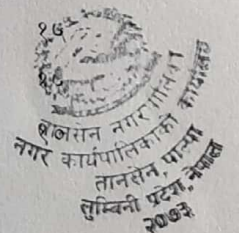 १७
नगरपालिका
नगर कार्यपालिकाको कार्यालय
तानसेन, पाल्पा
लुम्बिनी प्रदेश, नेपाल
२०७३